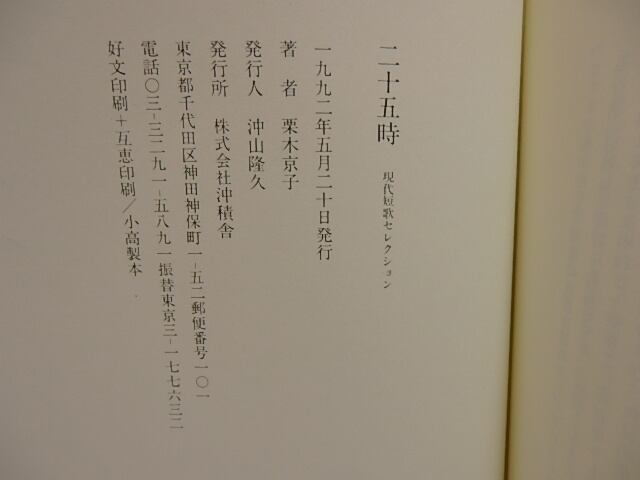 二十五時 現代短歌セレクション
一九九二年五月二十日発行
著 者 栗木京子
発行人 沖山隆久
発行所 株式会社沖積舎
東京都千代田区神田神保町一-五二郵便番号一〇一
電話〇三-三二九一-五八九一振替東京三-一七七六三二
好文印刷+互恵印刷/小高製本